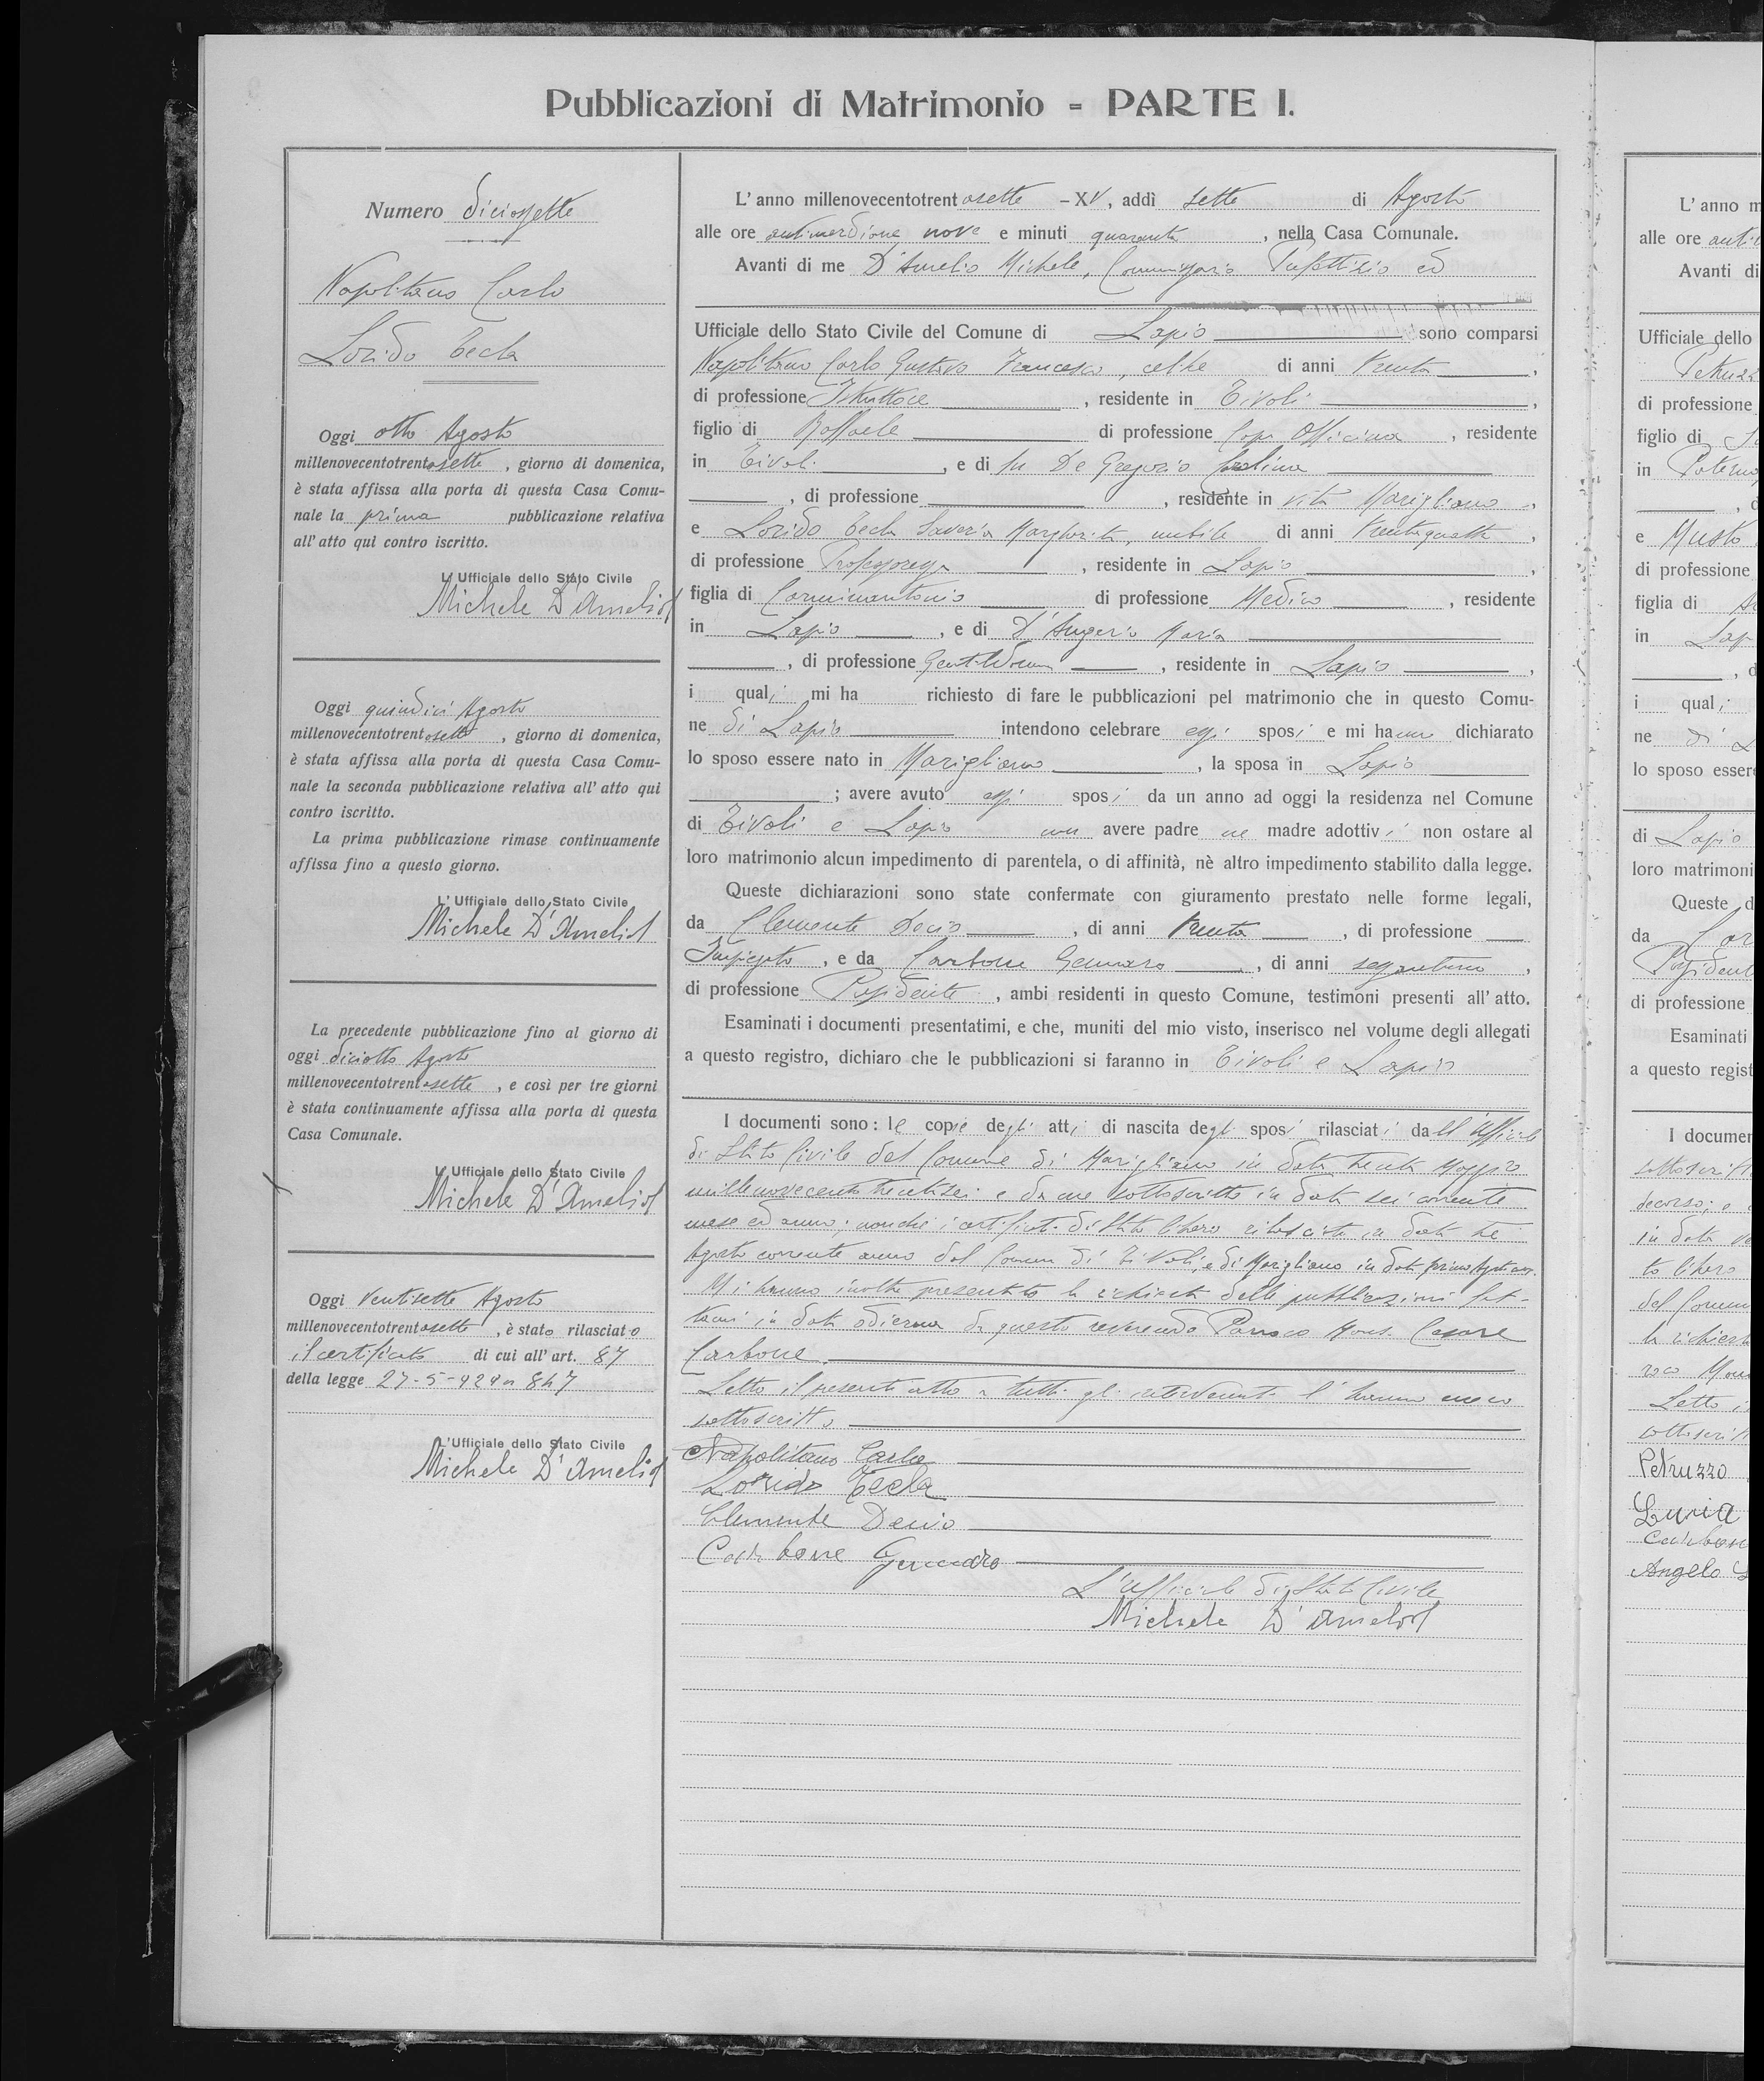 Pubblicazioni di Matrimonio - PARTE I.
Numero diciassette
Napolitano Carlo
Lorido Tecla
Oggi otto Agosto
millenovecentotrentasette, giorno di domenica,
è stata affissa alla porta di questa Casa Comu-
nale la prima pubblicazione relativa
all'atto qui contro iscritto.
L'Ufficiale dello Stato Civile
Michele D'Amelio
Oggi quindici Agosto
millenovecentotrentasette, giorno di domenica,
è stata affissa alla porta di questa Casa Comu-
nale la seconda pubblicazione relativa all'atto qui
contro iscritto.
La prima pubblicazione rimase continuamente
affissa fino a questo giorno.
L'Ufficiale dello Stato Civile
Michele D'Amelio
La precedente pubblicazione fino al giorno di
oggi diciotto Agosto
millenovecentotrentasette, e così per tre giorni
è stata continuamente affissa alla porta di questa
Casa Comunale.
L'Ufficiale dello Stato Civile
Michele D'Amelio
Oggi Ventisette Agosto
millenovecentotrentasette, è stato rilasciato
il certificato di cui all'art. 87
della legge 27-5-929 n 847
L'Ufficiale dello Stato Civile
Michele D'Amelio
L'anno millenovecentotrentasette - XV, addì sette di Agosto
alle ore antimeridiane nove e minuti quaranta, nella Casa Comunale.
Avanti di me D'Amelio Michele, Commissario Prefettizio ed
Ufficiale dello Stato Civile del Comune di Lapio sono comparsi
Napolitano Carlo Gustavo Francesco, celibe di anni trenta,
di professione Istruttore, residente in Tivoli,
figlio di Raffaele di professione Capo Officina, residente
in Tivoli, e di fu De Gregorio Carolina
, di professione , residente in vita Marigliano,
e Lorido Tecla Saveria Margherita, nubile di anni trentaquattro,
di professione Professoressa, residente in Lapio,
figlia di Carminantonio di professione Medico, residente
in Lapio, e di D'Angerio Maria
, di professione Gentildonna, residente in Lapio,
i quali mi ha richiesto di fare le pubblicazioni pel matrimonio che in questo Comu-
ne di Lapio intendono celebrare essi sposi e mi hanno dichiarato
lo sposo essere nato in Marigliano, la sposa in Lapio
; avere avuto essi sposi da un anno ad oggi la residenza nel Comune
di Tivoli e Lapio non avere padre ne madre adottivi non ostare al
loro matrimonio alcun impedimento di parentela, o di affinità, nè altro impedimento stabilito dalla legge.
Queste dichiarazioni sono state confermate con giuramento prestato nelle forme legali,
da Clemente Decio, di anni trenta, di professione
Impiegato, e da Carbone Gennaro, di anni sessantuno,
di professione Possidente, ambi residenti in questo Comune, testimoni presenti all'atto.
Esaminati i documenti presentatimi, e che, muniti del mio visto, inserisco nel volume degli allegati
a questo registro, dichiaro che le pubblicazioni si faranno in Tivoli e Lapio
I documenti sono: le copie degli atti di nascita degli sposi rilasciati dall'Ufficiale
di Stato Civile del Comune di Marigliano in data trenta Maggio
millenovecentotrentasei e da me sottoscritto in data sei corrente
mese ed anno; nonchè i certificati di stato libero rilasciati in data tre
Agosto corrente anno dal Comune di Tivoli, e di Marigliano in data primo Agosto
Mi hanno inoltre presentato la richiesta delle pubblicazioni fat-
tami in data odierna da questo reverendo Parroco Mons. Cesare
Carbone.
Letto il presente atto a tutti gli intervenuti l'hanno meco
sottoscritto
Napolitano Carlo
Lorido Tecla
Clemente Decio
Carbone Gennaro
L'Ufficiale di Stato Civile
Michele D'Amelio
L'anno m
alle ore anti
Avanti di
Ufficiale dello
Petruzz
di professione
figlio di
in Paterno
e Musto
di professione
figlia di
in Lap
i quali
ne di L
lo sposo esser
di Lapio
loro matrimoni
Queste d
da Car
Possident
di professione
Esaminati
a questo regist
I documen
sottoscritt
decorso; e
in data
to libero
del Comun
la richiest
roco Mons
Letto i
sottoscritt
Petruzzo
Luria
Carbon
Angelo